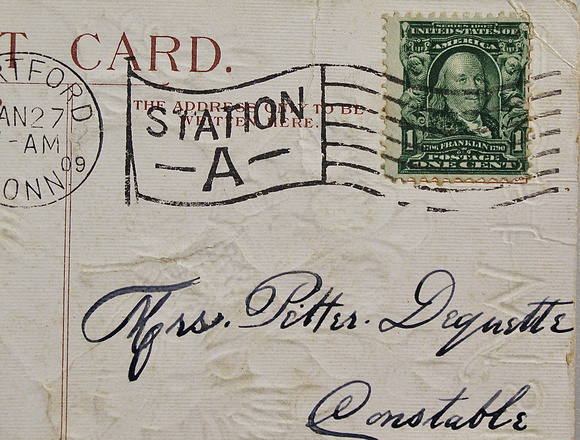 T CARD.
RTFORD
AN 27
-AM
09
ONN
THE ADDRESS ONLY TO BE
WRITTEN HERE.
STATION
A
SERIES 1902
UNITED STATES OF
AMERICA
1706 FRANKLIN 1790
1 1
POSTAGE
ONE CENT
Mrs. Pitter. Dequette
Constable